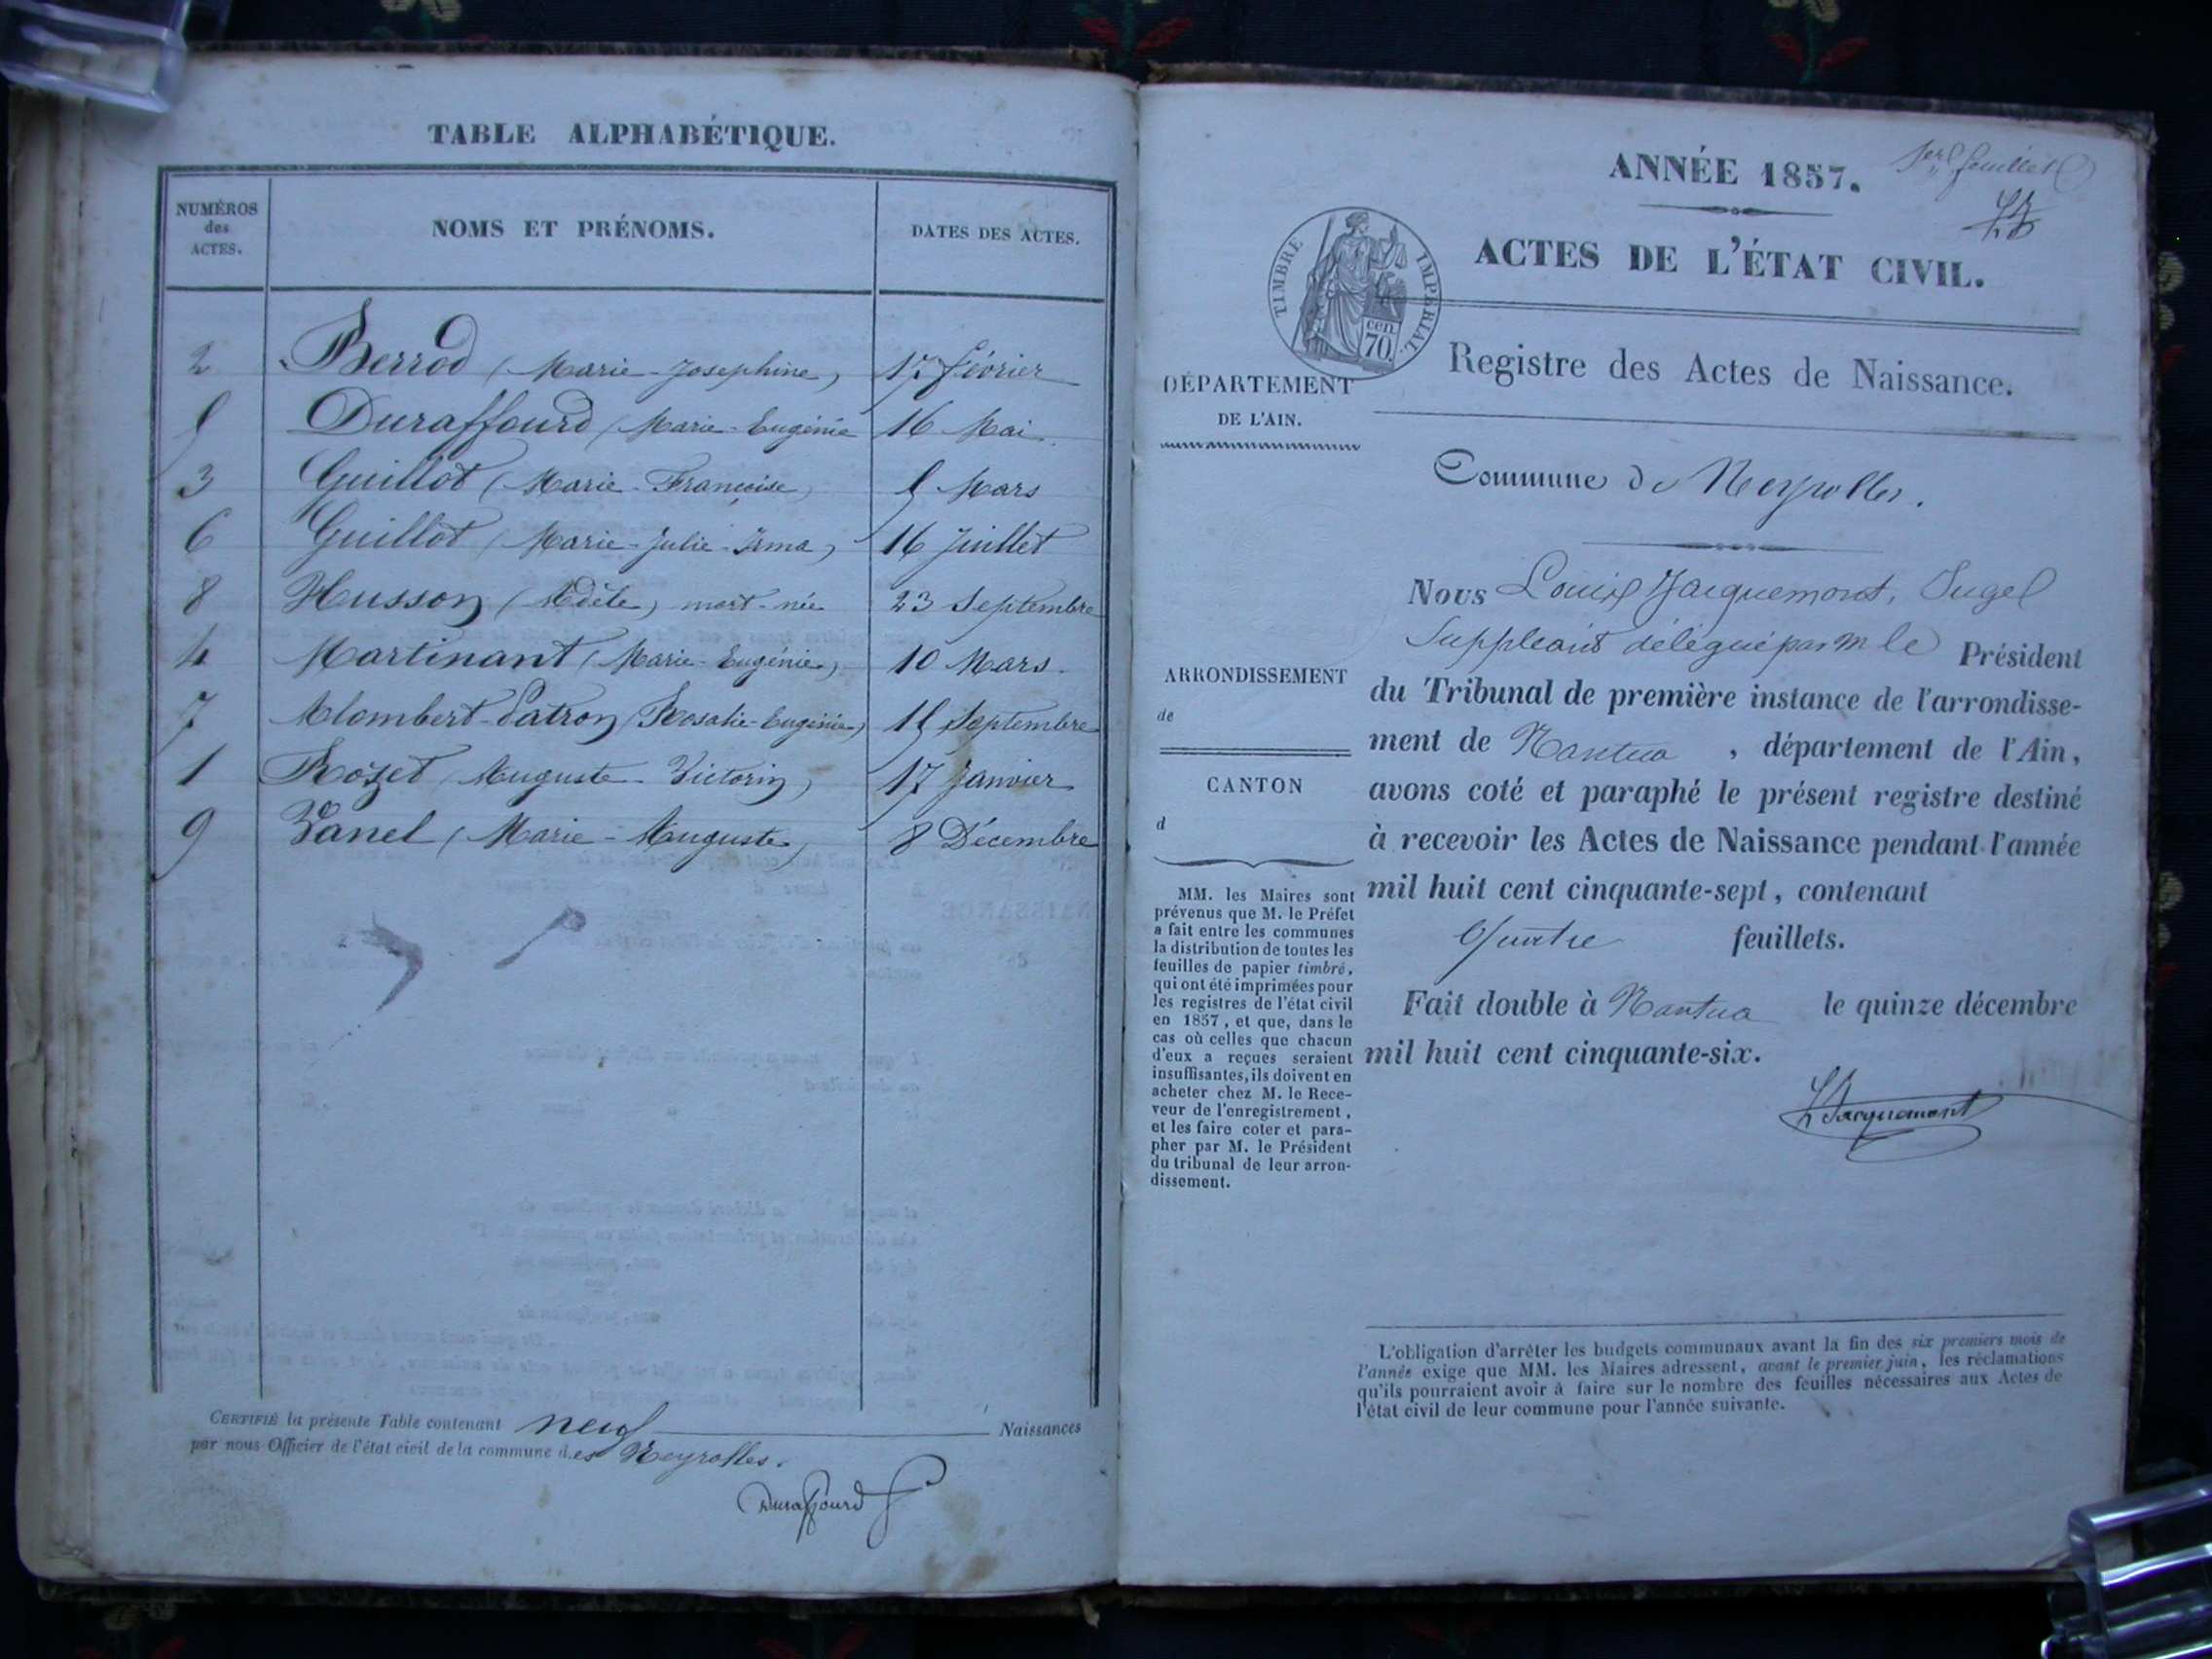 TABLE ALPHABÉTIQUE.
NUMÉROS des ACTES. NOMS ET PRÉNOMS. DATES DES ACTES.
2 Berrod (Marie-Josephine) 17 février
5 Duraffourd (Marie-Eugénie 16 Mai.
3 Guillot (Marie-Françoise) 5 Mars
6 Guillot (Marie-Julie-Irma) 16 Juillet
8 Husson (Adèle) mort-née 23 Septembre
4 Martinant (Marie-Eugénie) 10 Mars.
7 Patron (Rosalie-Eugénie) 15 Septembre
1 Rozet (Auguste-Victorin) 17 Janvier
9 Vanel (Marie-Auguste) 8 Décembre
CERTIFIÉ la présente Table contenant neuf Naissances
par nous Officier de l'état civil de la commune des Neyrolles.
Duraffourd
1er feuillet
ANNÉE 1857.
ACTES DE L'ÉTAT CIVIL.
TIMBRE IMPÉRIAL.
cen.
70.
Registre des Actes de Naissance.
DÉPARTEMENT
DE L'AIN.
Commune de Neyrolles.
ARRONDISSEMENT
de
CANTON
d
MM. les Maires sont
prévenus que M. le Préfet
a fait entre les communes
la distribution de toutes les
feuilles de papier timbré,
qui ont été imprimées pour
les registres de l'état civil
en 1857, et que, dans le
cas où celles que chacun
d'eux a reçues seraient
insuffisantes, ils doivent en
acheter chez M. le Rece-
veur de l'enregistrement,
et les faire coter et para-
pher par M. le Président
du tribunal de leur arron-
dissement.
Nous Louis Jacquemont, Jugel
Suppléant délégué par M le Président
du Tribunal de première instance de l'arrondisse-
ment de Nantua, département de l'Ain,
avons coté et paraphé le présent registre destiné
à recevoir les Actes de Naissance pendant l'année
mil huit cent cinquante-sept, contenant
Quatre feuillets.
Fait double à Nantua le quinze décembre
mil huit cent cinquante-six.
L Jacquemont
L'obligation d'arrêter les budgets communaux avant la fin des six premiers mois de
l'année exige que MM. les Maires adressent, avant le premier juin, les réclamations
qu'ils pourraient avoir à faire sur le nombre des feuilles nécessaires aux Actes de
l'état civil de leur commune pour l'année suivante.